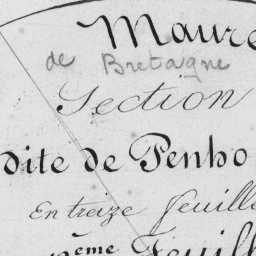 Maure
de Bretagne
Section
dite de Penho
En treize feuille
ème Feuill